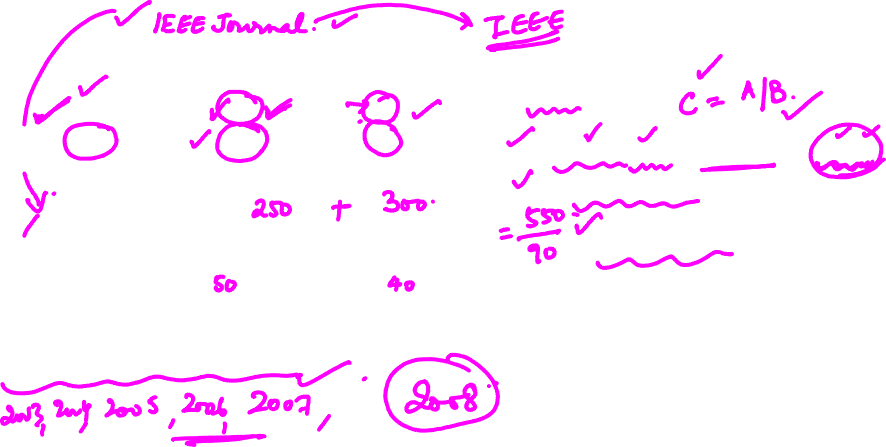 IEEE Journal. IEEE
C = A/B.
250 + 300. = 550/90
50 40
2003, 2004, 2005, 2006, 2007, 2008